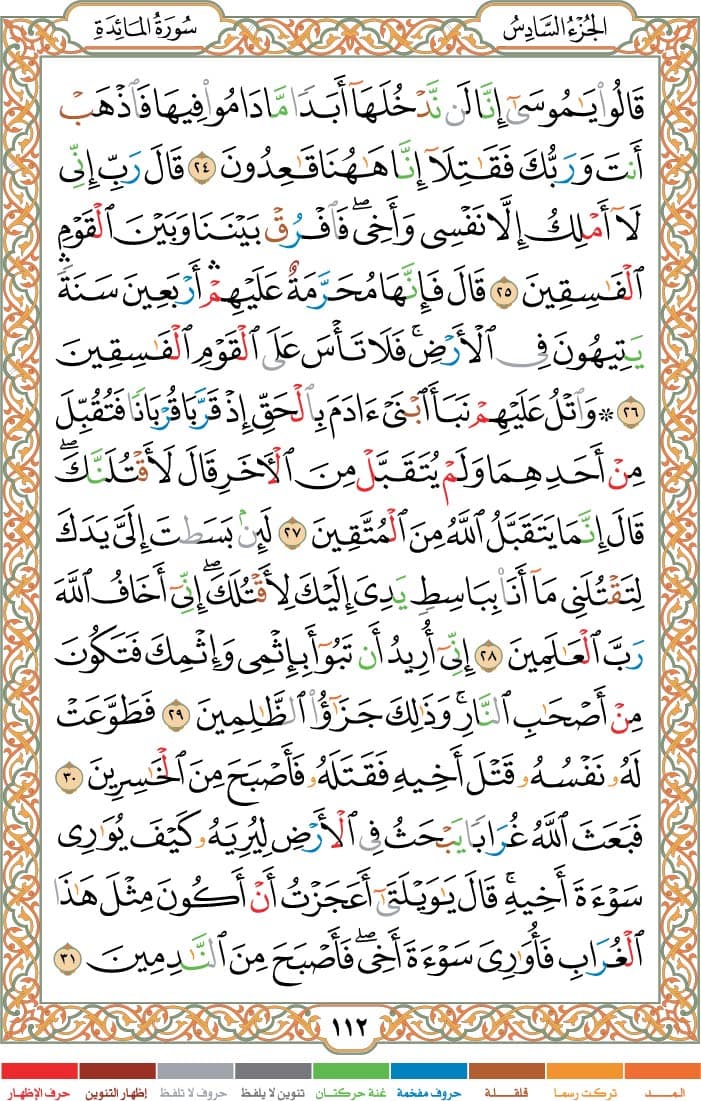 الجُزْءُ السَّادِسُ
سُورَةُ المَائِدَةِ
قَالُوا۟ يَـٰمُوسَىٰٓ إِنَّا لَن نَّدْخُلَهَآ أَبَدًا مَّا دَامُوا۟ فِيهَا فَٱذْهَبْ
أَنتَ وَرَبُّكَ فَقَـٰتِلَآ إِنَّا هَـٰهُنَا قَـٰعِدُونَ ٢٤ قَالَ رَبِّ إِنِّى
لَآ أَمْلِكُ إِلَّا نَفْسِى وَأَخِى ۖ فَٱفْرُقْ بَيْنَنَا وَبَيْنَ ٱلْقَوْمِ
ٱلْفَـٰسِقِينَ ٢٥ قَالَ فَإِنَّهَا مُحَرَّمَةٌ عَلَيْهِمْ ۛ أَرْبَعِينَ سَنَةً ۛ
يَتِيهُونَ فِى ٱلْأَرْضِ ۚ فَلَا تَأْسَ عَلَى ٱلْقَوْمِ ٱلْفَـٰسِقِينَ
٢٦ ۞ وَٱتْلُ عَلَيْهِمْ نَبَأَ ٱبْنَىْ ءَادَمَ بِٱلْحَقِّ إِذْ قَرَّبَا قُرْبَانًا فَتُقُبِّلَ
مِنْ أَحَدِهِمَا وَلَمْ يُتَقَبَّلْ مِنَ ٱلْـَٔاخَرِ قَالَ لَأَقْتُلَنَّكَ ۖ
قَالَ إِنَّمَا يَتَقَبَّلُ ٱللَّهُ مِنَ ٱلْمُتَّقِينَ ٢٧ لَئِنۢ بَسَطتَ إِلَىَّ يَدَكَ
لِتَقْتُلَنِى مَآ أَنَا۠ بِبَاسِطٍ يَدِىَ إِلَيْكَ لِأَقْتُلَكَ ۖ إِنِّىٓ أَخَافُ ٱللَّهَ
رَبَّ ٱلْعَـٰلَمِينَ ٢٨ إِنِّىٓ أُرِيدُ أَن تَبُوٓأَ بِإِثْمِى وَإِثْمِكَ فَتَكُونَ
مِنْ أَصْحَـٰبِ ٱلنَّارِ ۚ وَذَٰلِكَ جَزَٰٓؤُا۟ ٱلظَّـٰلِمِينَ ٢٩ فَطَوَّعَتْ
لَهُۥ نَفْسُهُۥ قَتْلَ أَخِيهِ فَقَتَلَهُۥ فَأَصْبَحَ مِنَ ٱلْخَـٰسِرِينَ ٣٠
فَبَعَثَ ٱللَّهُ غُرَابًا يَبْحَثُ فِى ٱلْأَرْضِ لِيُرِيَهُۥ كَيْفَ يُوَٰرِى
سَوْءَةَ أَخِيهِ ۚ قَالَ يَـٰوَيْلَتَىٰٓ أَعَجَزْتُ أَنْ أَكُونَ مِثْلَ هَـٰذَا
ٱلْغُرَابِ فَأُوَٰرِىَ سَوْءَةَ أَخِى ۖ فَأَصْبَحَ مِنَ ٱلنَّـٰدِمِينَ ٣١
١١٢
المـــد تركت رسما قلقـــلة حروف مفخمة غنة حركتـان تنوين لا يلفظ حروف لا تلفظ إظهار التنوين حرف الإظهار